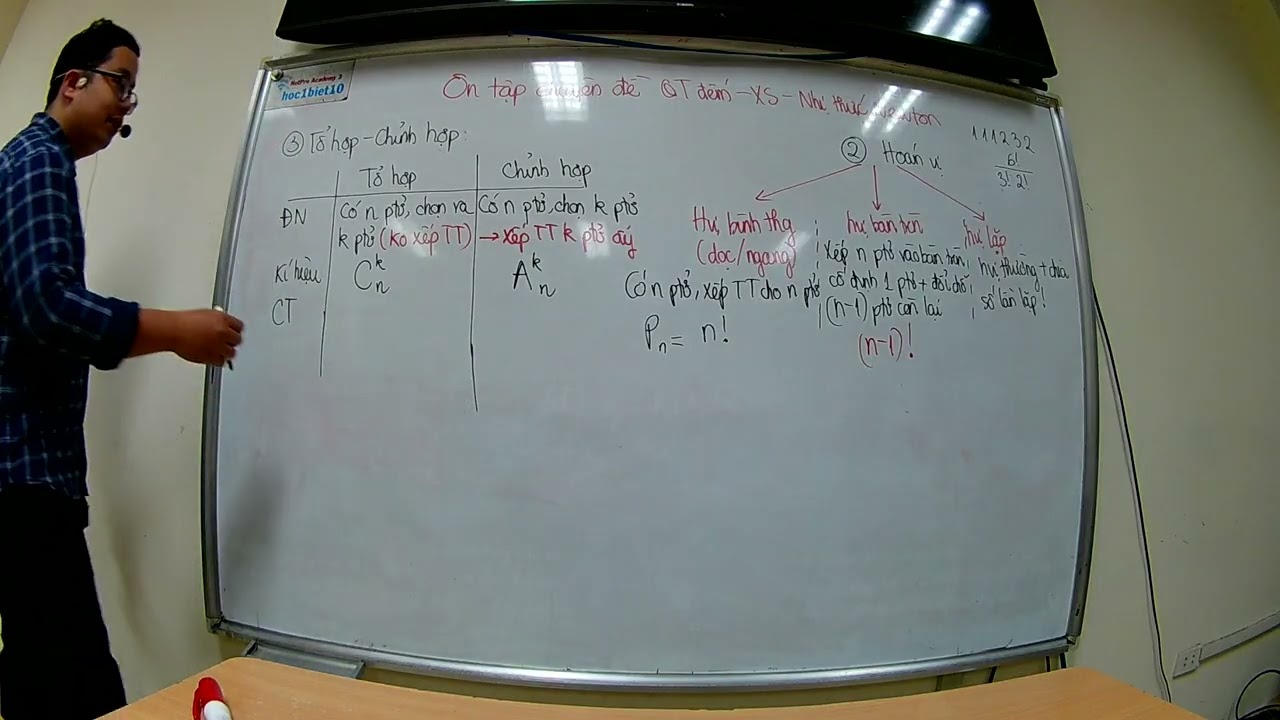 HocPro Academy 3
hoc1biet10
Ôn tập chuyên đề QT đếm - XS - Nhị thức Newton
③ Tổ hợp - Chỉnh hợp:
Tổ hợp
Chỉnh hợp
ĐN
Có n ptử, chọn ra
k ptử (ko xếp TT)
Có n ptử, chọn k ptử
→ xếp TT k ptử ấy
Kí hiệu
C_n^k
A_n^k
CT
② Hoán vị
111232
6!
3! 2!
Hvị bình thg
(dọc/ngang)
Có n ptử, xếp TT cho n ptử
P_n = n!
hvị bàn tròn
xếp n ptử vào bàn tròn
cố định 1 ptử + đổi chỗ
(n-1) ptử còn lại
(n-1)!
hvị lặp
hvị thường + chia
số lần lặp!